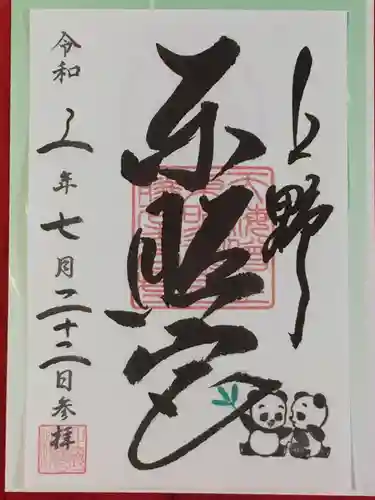 上野
東照宮
令和六年七月二十二日参拝